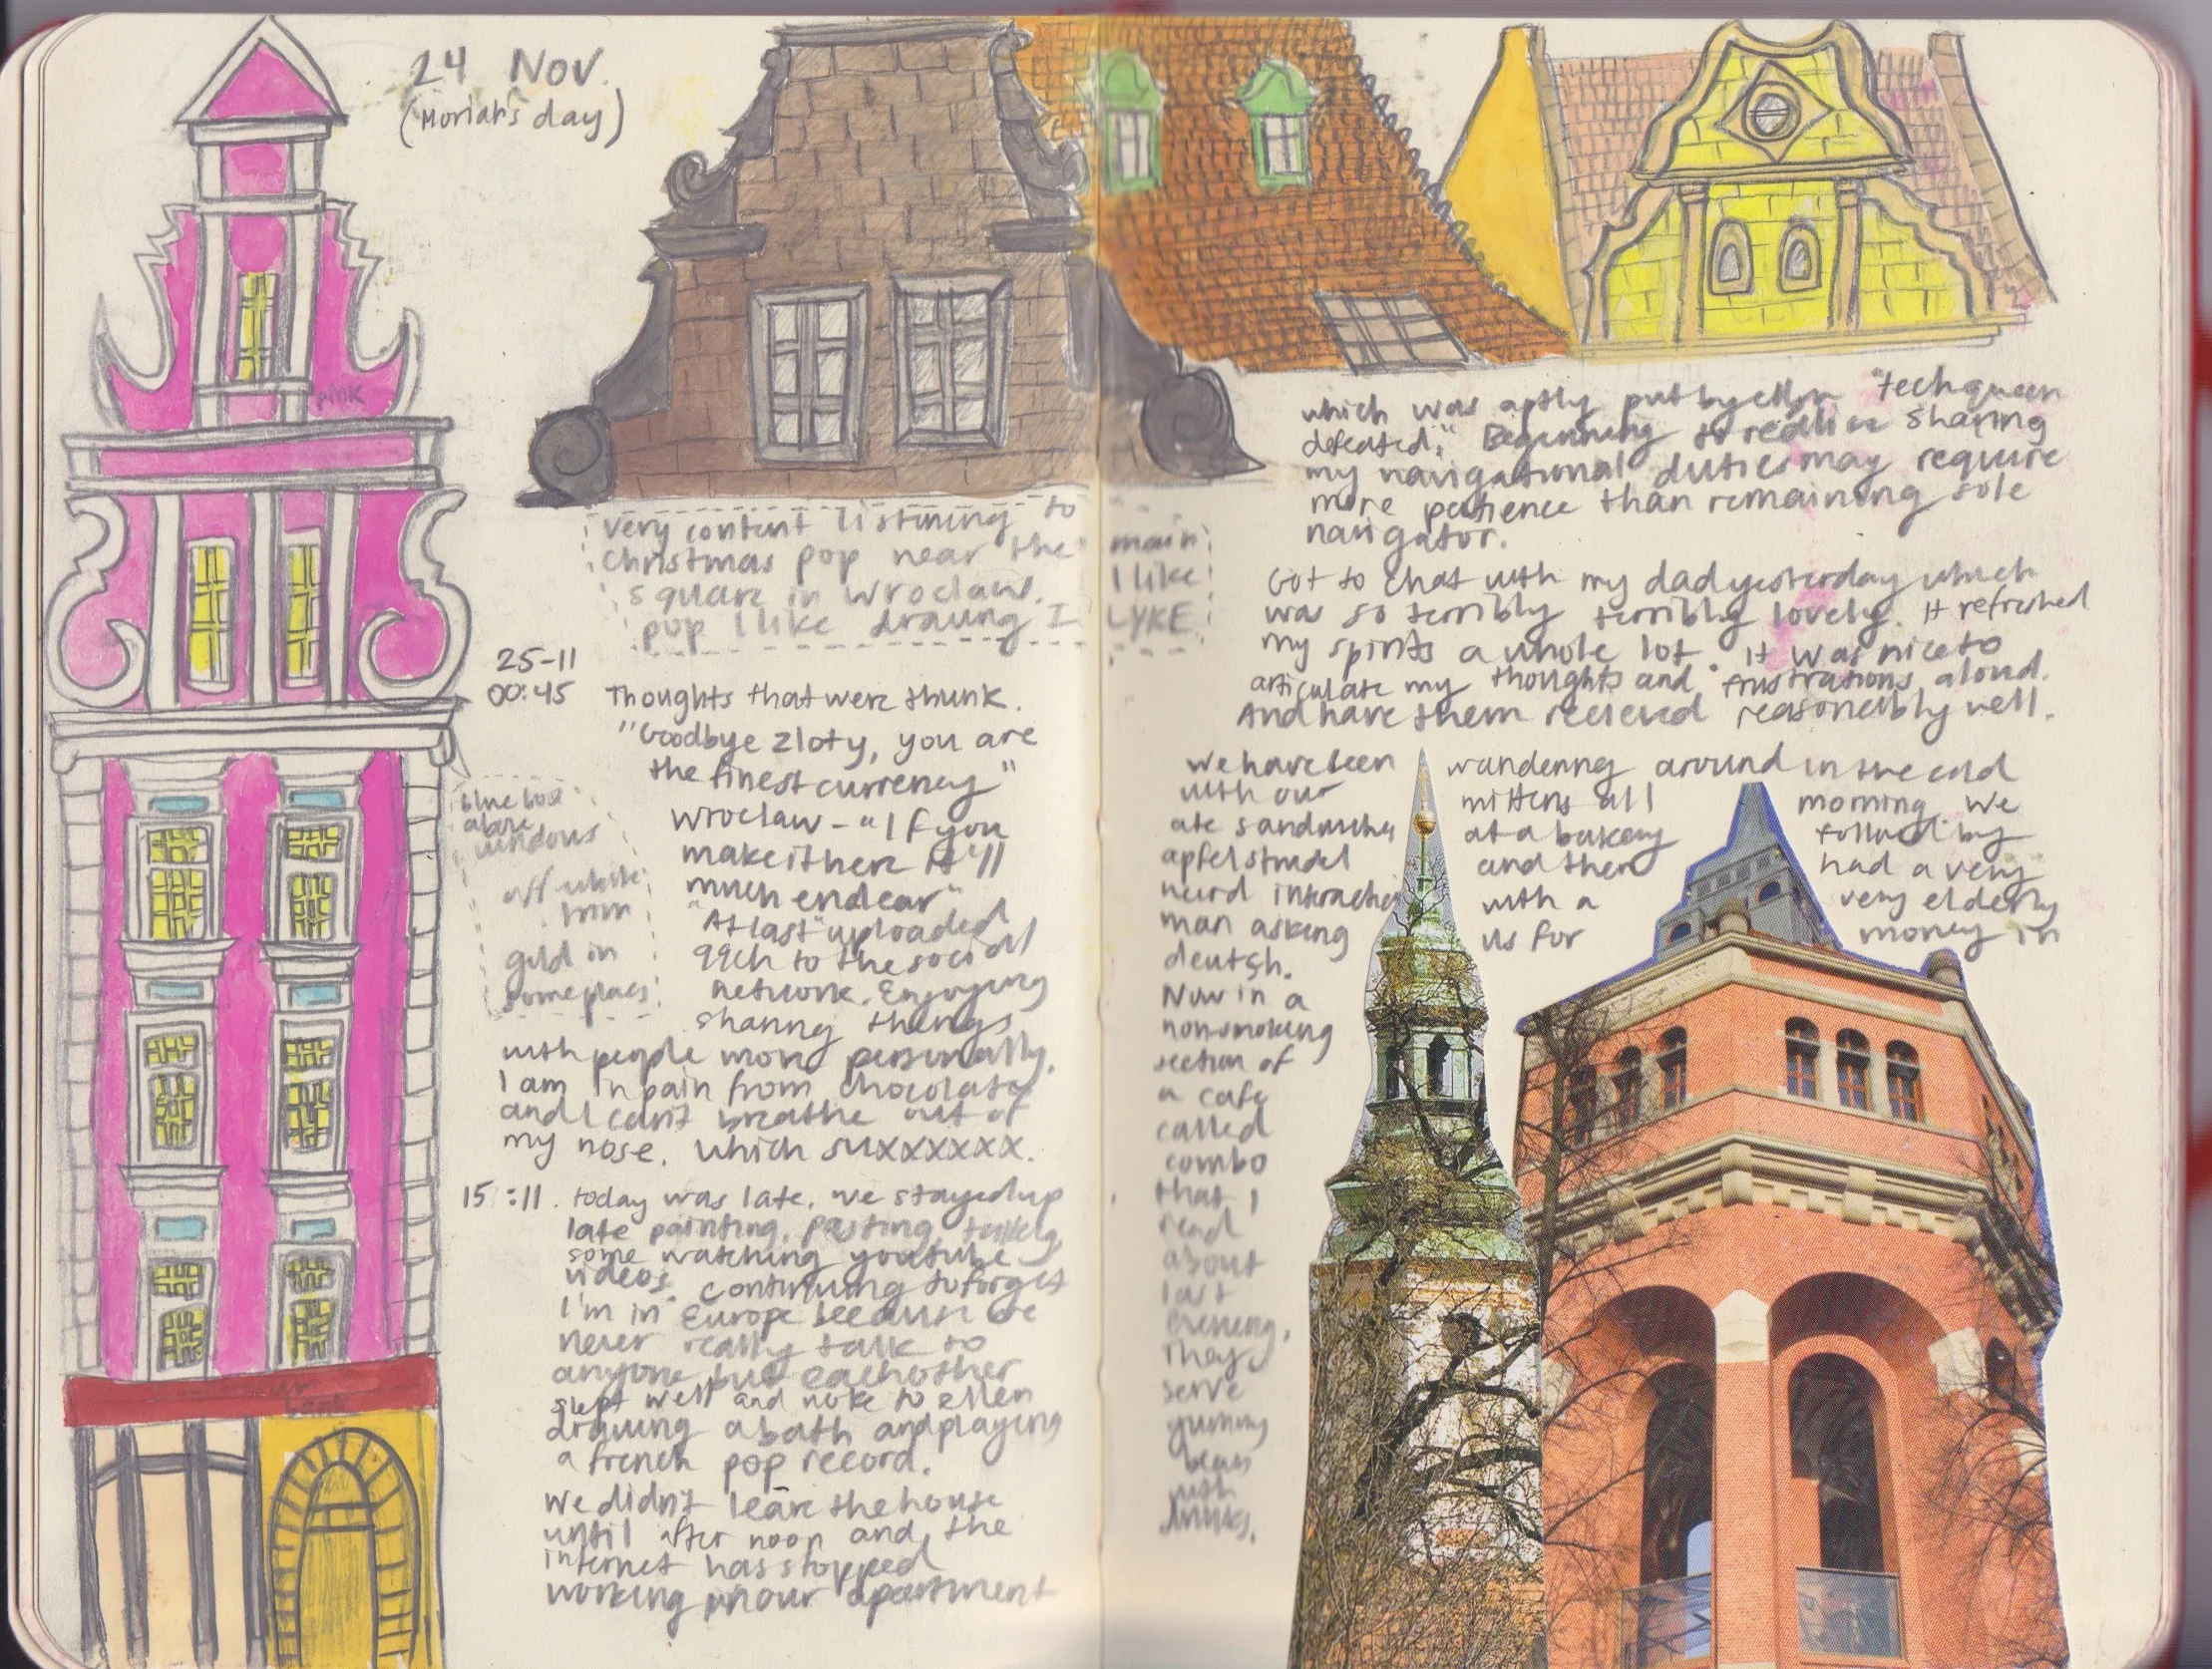 24 Nov.
(Moriah's day)
pink
very content listening to
christmas pop near the main
square in Wroclaw. I like
pop I like drawing I LYKE
25-11
00:45 Thoughts that were thunk.
"Goodbye zloty, you are
the finest currency"
blue box
above
windows
off white
trim
gold in
some places
Wroclaw - "If you
make it here it'll
much endear"
"At last" uploaded
to the social
network. Enjoying
sharing things
with people more personally.
I am in pain from chocolate
and I can't breathe out of
my nose. which suxxxxxxx.
15:11. today was late. we stayed up
late painting, pasting, talking
some watching youtube
videos. continuing to forget
I'm in Europe because we
never really talk to
anyone but eachother
slept well and woke to ellen
drawing a bath and playing
a french pop record.
We didn't leave the house
until after noon and the
internet has stopped
working in our apartment
which was aptly put by ellen "tech queen
defeated." Beginning to realise sharing
my navigational duties may require
more patience than remaining sole
navigator.
Got to chat with my dad yesterday which
was so terribly terribly lovely. It refreshed
my spirits a whole lot. It was nice to
articulate my thoughts and frustrations aloud.
And have them received reasonably well.
We have been wandering around in the cold
with our mittens all morning. We
ate sandwiches at a bakery followed by
apfelstrudel and then had a very
weird interaction with a very elderly
man asking us for money in
deutsh.
Now in a
non smoking
section of
a cafe
called
combo
that I
read
about
last
evening.
They
serve
yummy
with